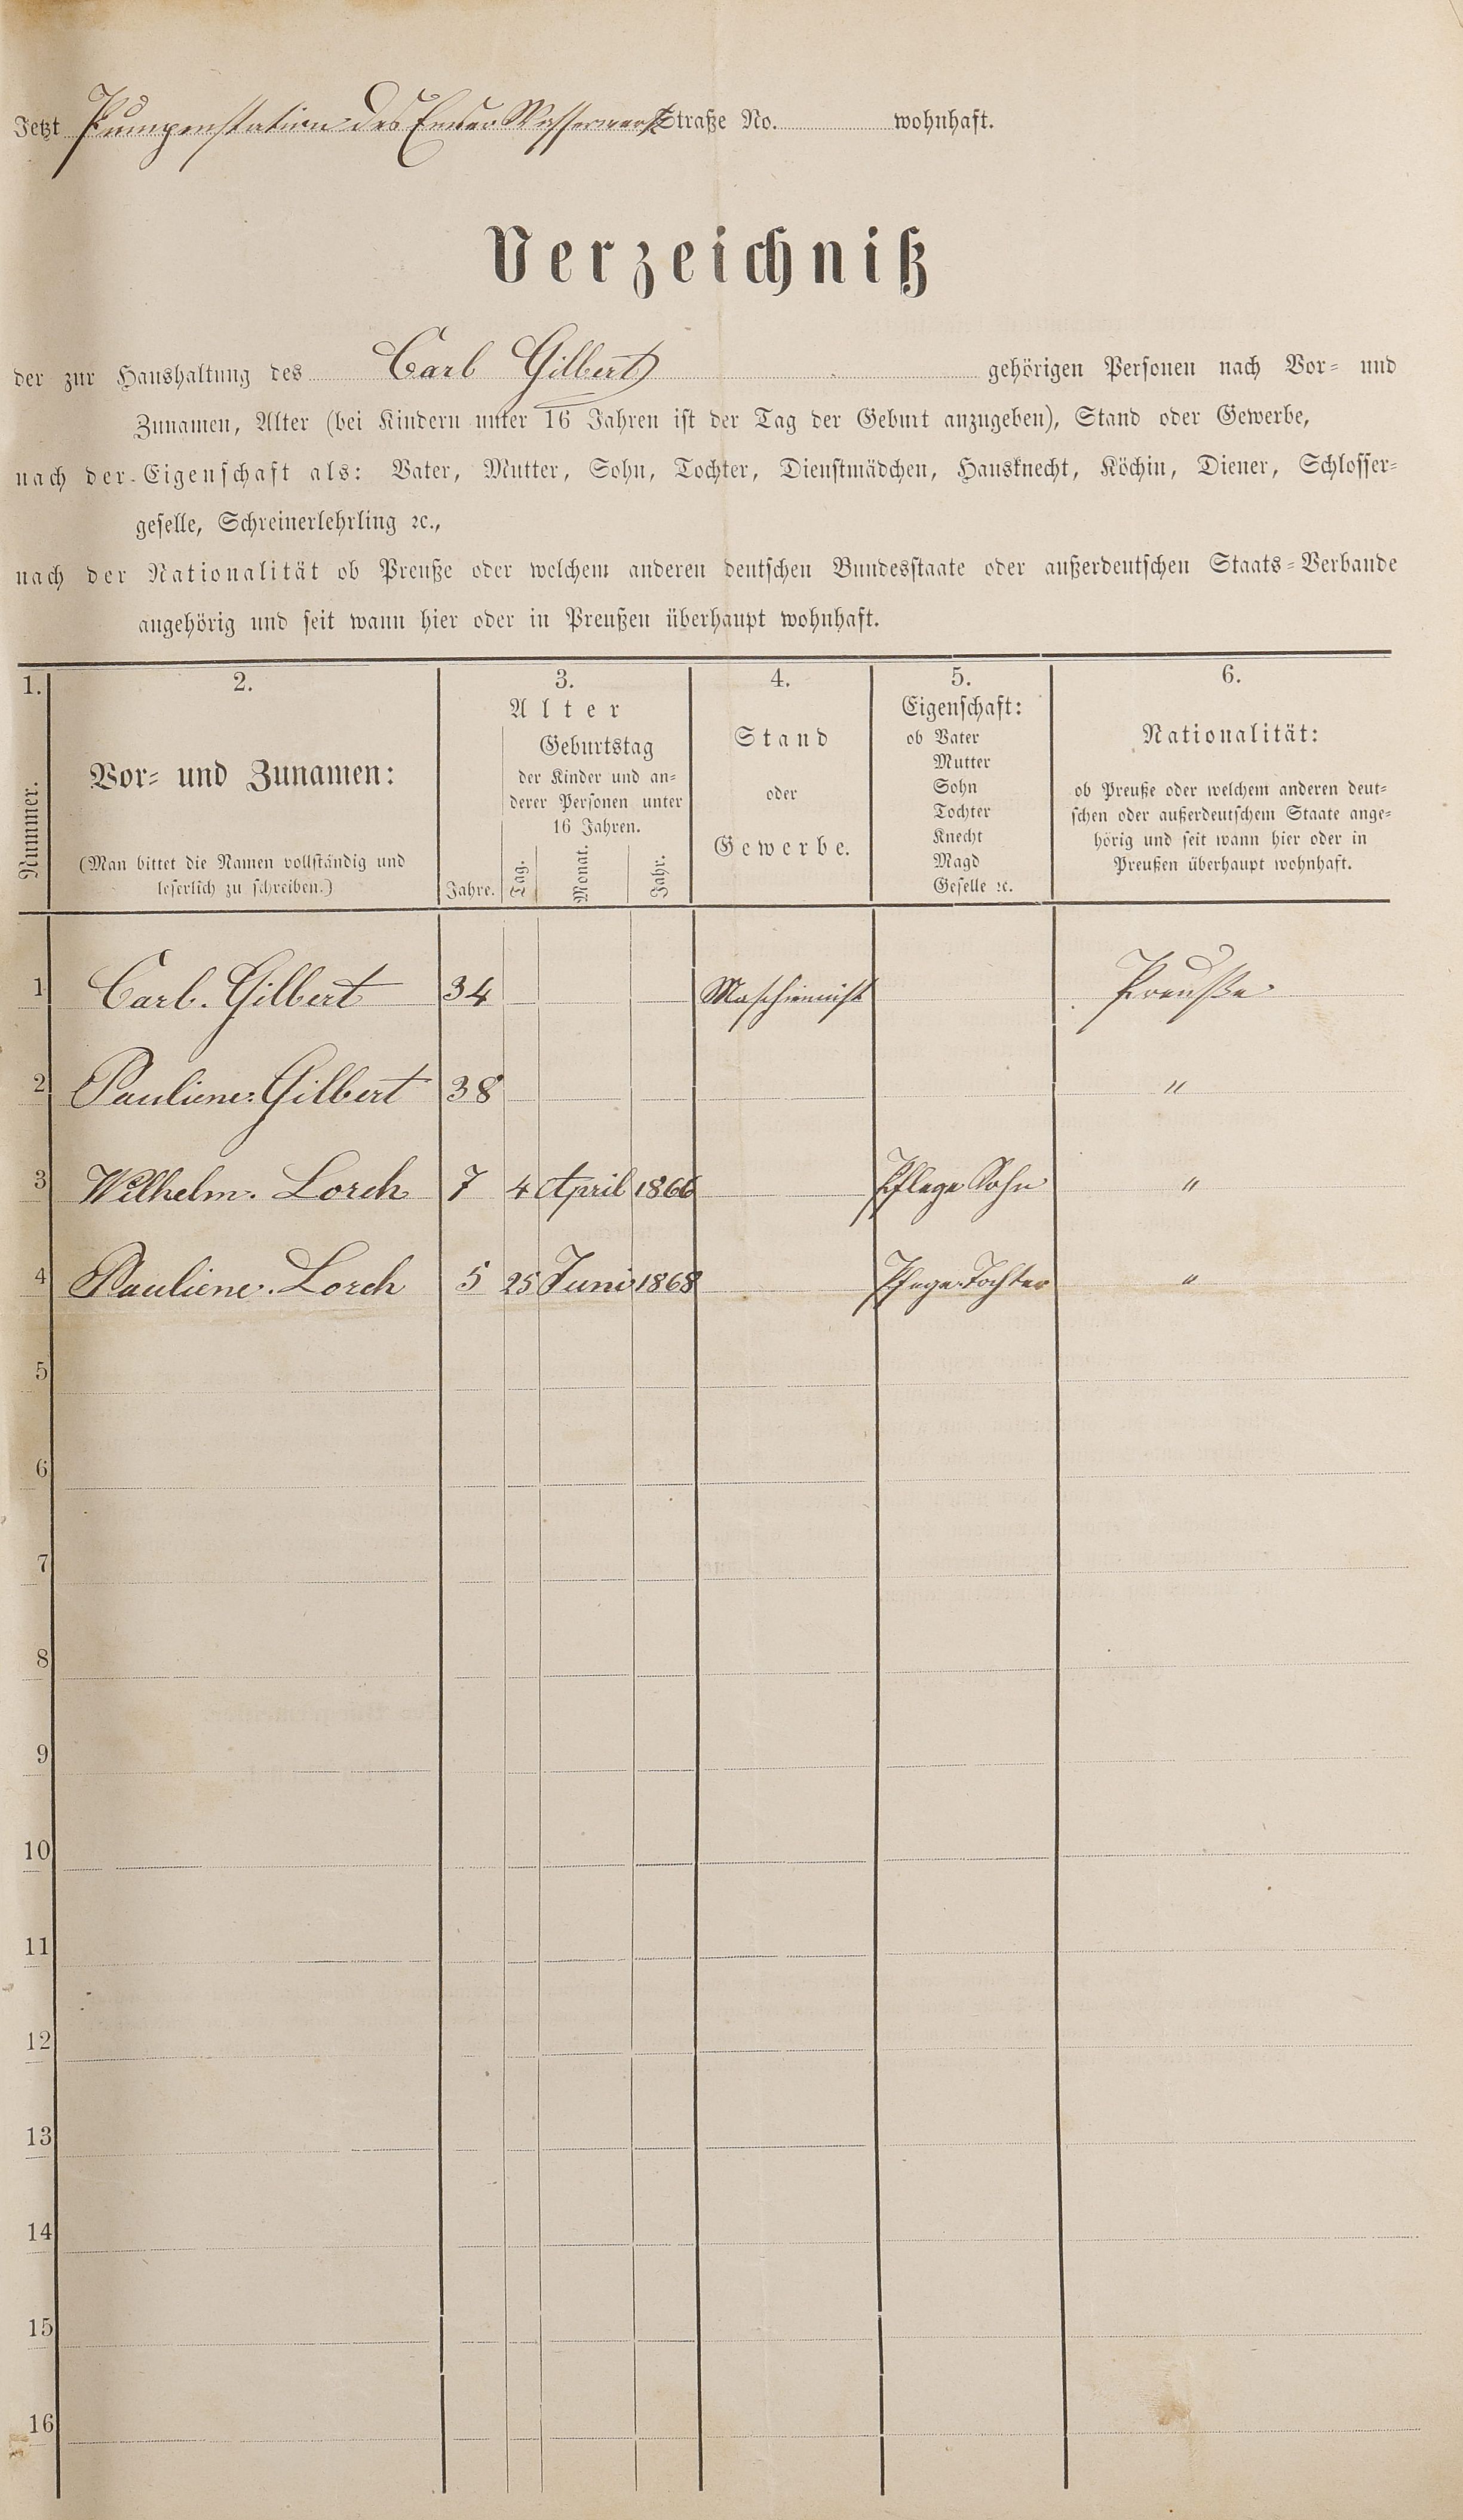 Jetzt Pumpenstation des Emser Wasserwerk Straße No. wohnhaft.
Verzeichniß
der zur Haushaltung des Carl Gilbert gehörigen Personen nach Vor- und
Zunamen, Alter (bei Kindern unter 16 Jahren ist der Tag der Geburt anzugeben), Stand oder Gewerbe,
nach der Eigenschaft als: Vater, Mutter, Sohn, Tochter, Dienstmädchen, Hausknecht, Köchin, Diener, Schlosser-
geselle, Schreinerlehrling ꝛc.,
nach der Nationalität ob Preuße oder welchem anderen deutschen Bundesstaate oder außerdeutschen Staats-Verbande
angehörig und seit wann hier oder in Preußen überhaupt wohnhaft.
1.
Nummer.
2.
Vor- und Zunamen:
(Man bittet die Namen vollständig und
leserlich zu schreiben.)
3.
Alter
Jahre.
Geburtstag
der Kinder und an-
derer Personen unter
16 Jahren.
Tag. Monat. Jahr.
4.
Stand
oder
Gewerbe.
5.
Eigenschaft:
ob Vater
Mutter
Sohn
Tochter
Knecht
Magd
Geselle ꝛc.
6.
Nationalität:
ob Preuße oder welchem anderen deut-
schen oder außerdeutschem Staate ange-
hörig und seit wann hier oder in
Preußen überhaupt wohnhaft.
1 Carl. Gilbert 34 Maschienist Preuße
2 Pauliene. Gilbert 38 "
3 Wilhelm. Lorch 7 4 April 1866 Pflege Sohn "
4 Pauliene. Lorch 5 25 Juni 1868 Pflege Tochter "
5
6
7
8
9
10
11
12
13
14
15
16